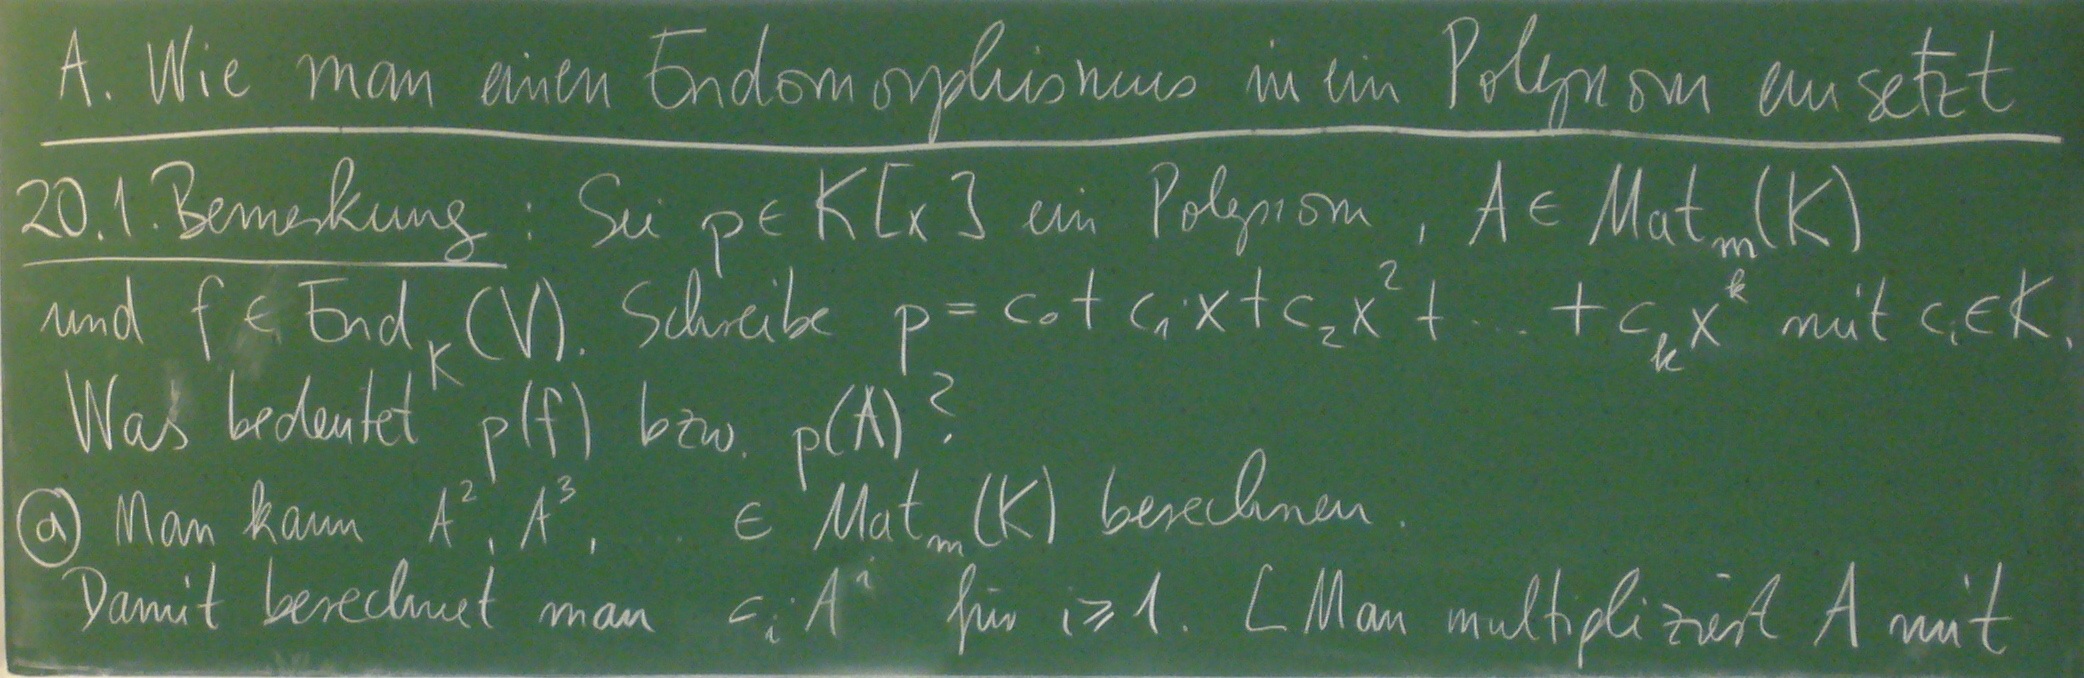 A. Wie man einen Endomorphismus in ein Polynom einsetzt
20.1. Bemerkung : Sei p ∈ K[x] ein Polynom, A ∈ Mat_m(K)
und f ∈ End_K(V). Schreibe p = c₀ + c₁x + c₂x² + ... + c_k x^k mit c_i ∈ K.
Was bedeutet p(f) bzw. p(A)?
(a) Man kann A², A³, ... ∈ Mat_m(K) berechnen.
Damit berechnet man c_i A^i für i ≥ 1. [Man multipliziert A mit